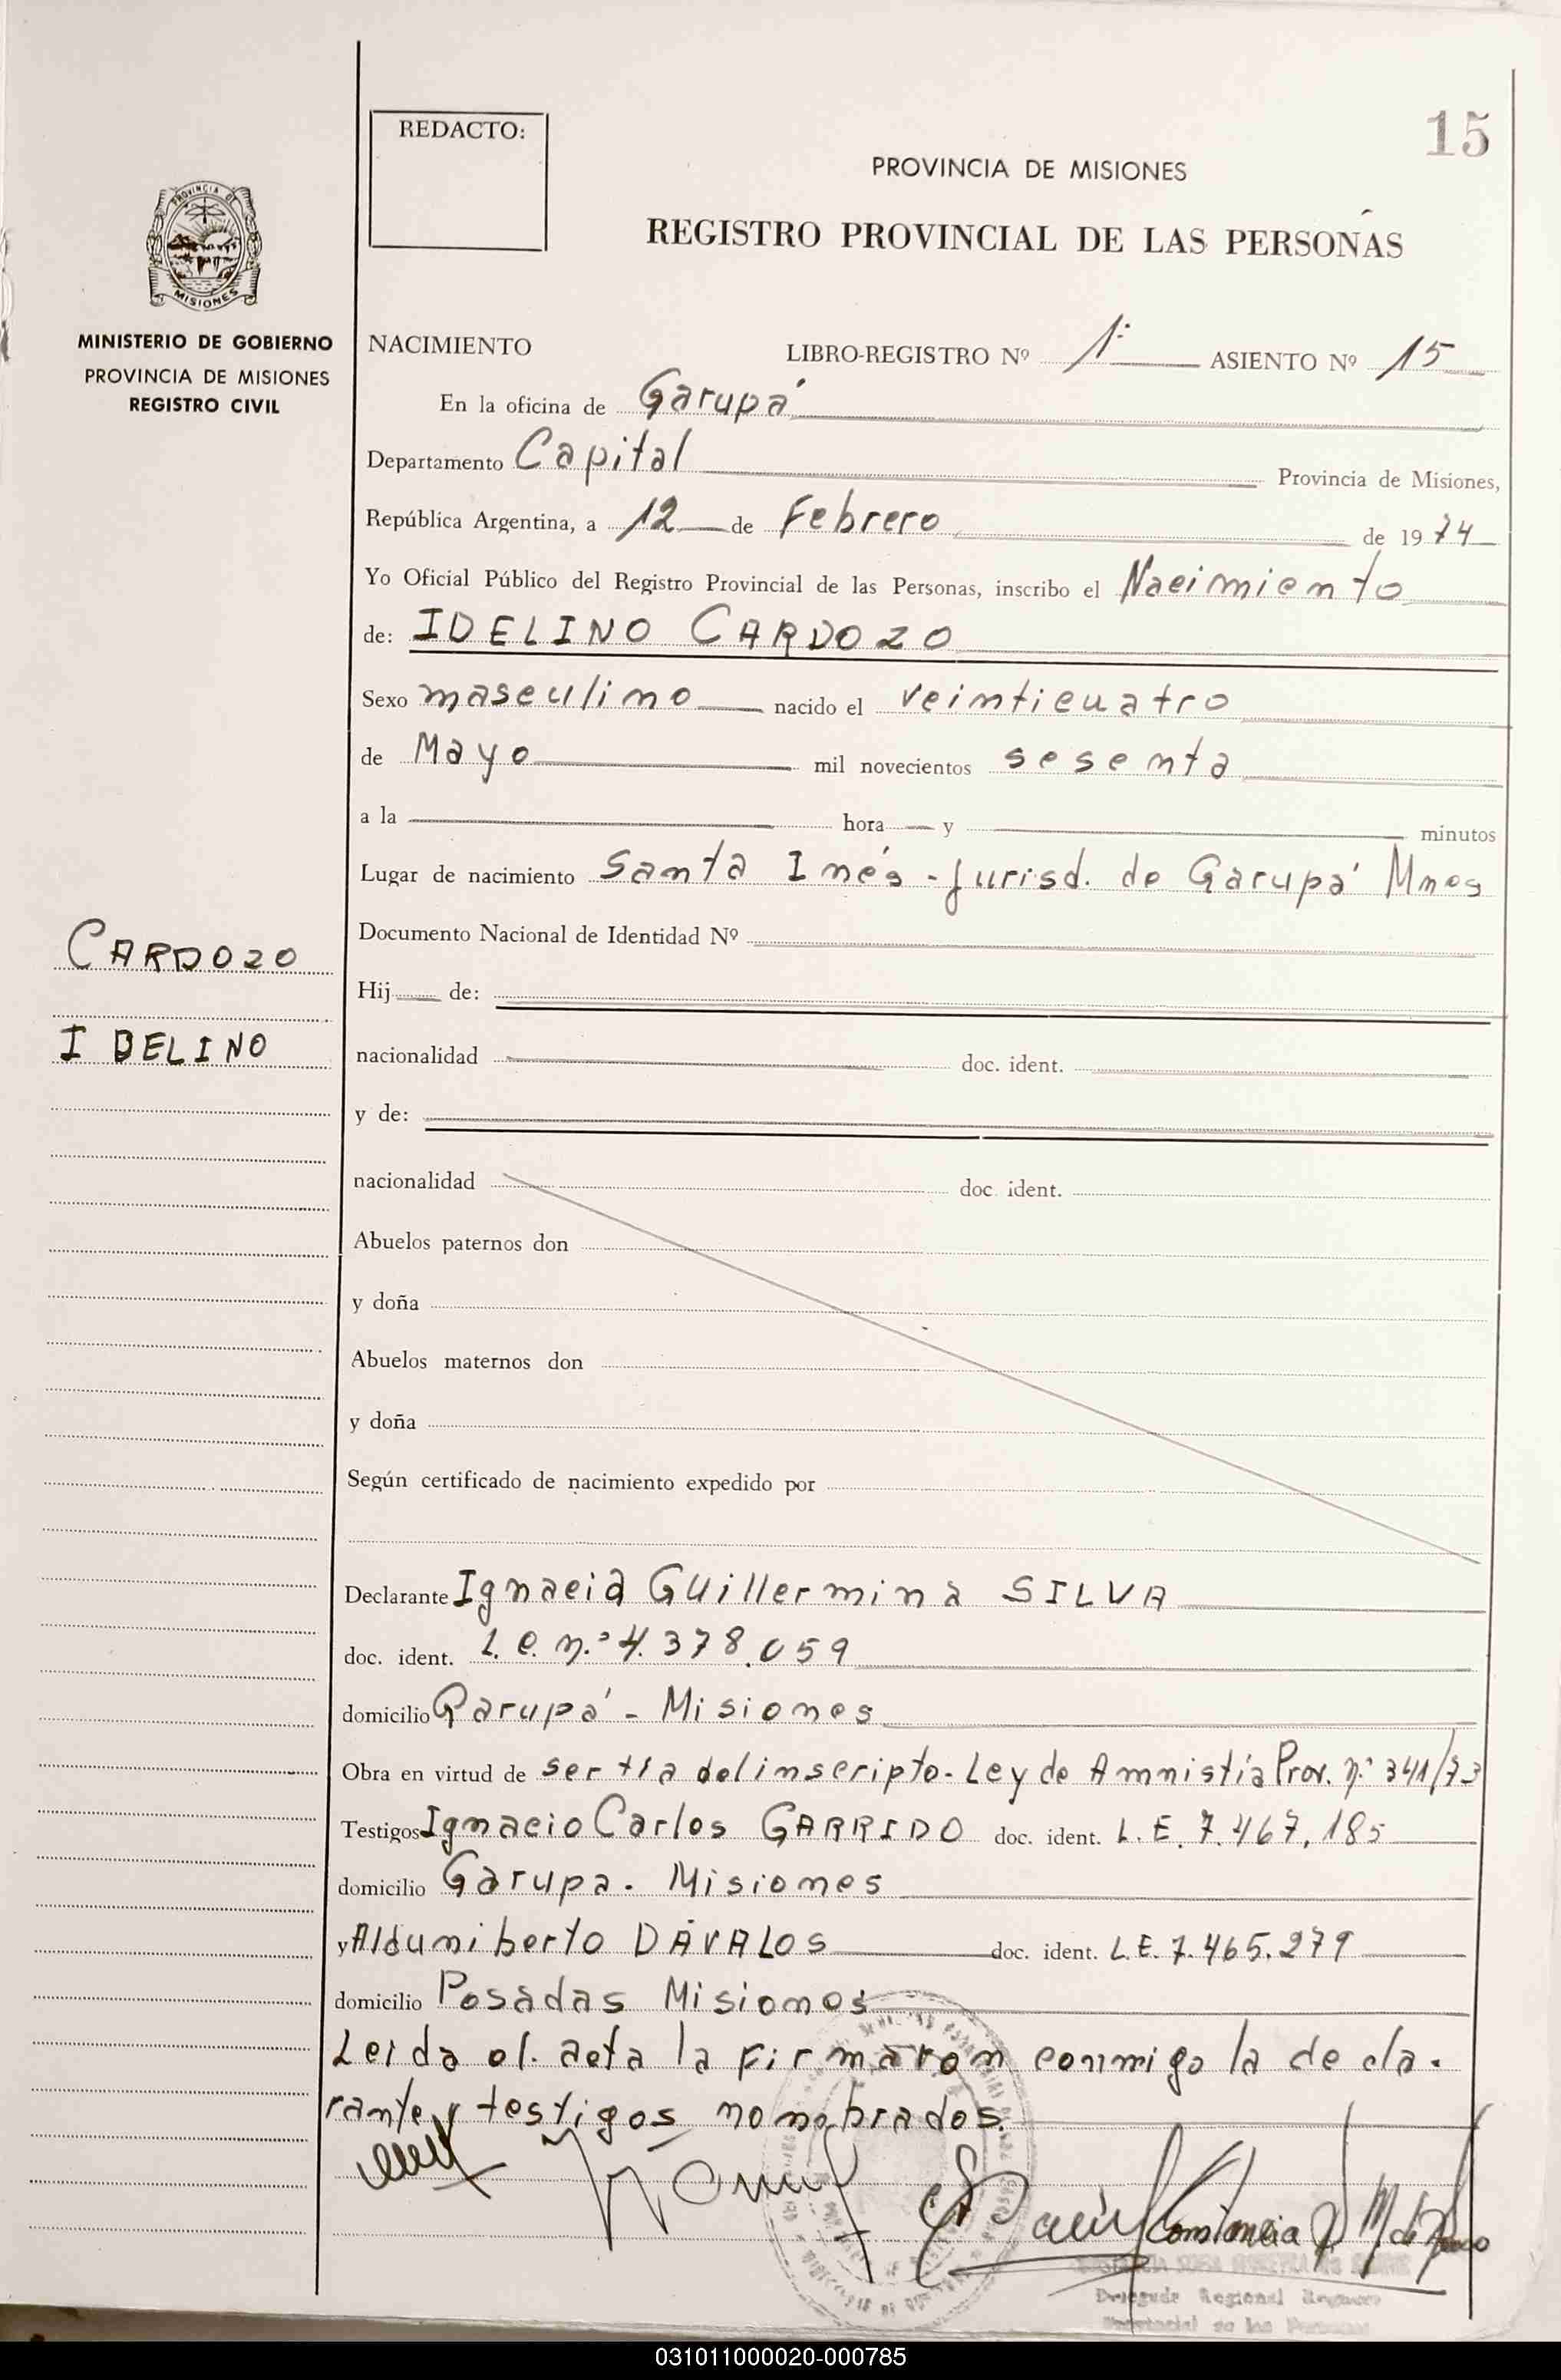 REDACTO:
15
PROVINCIA DE MISIONES
REGISTRO PROVINCIAL DE LAS PERSONAS
PROVINCIA DE
MISIONES
MINISTERIO DE GOBIERNO
PROVINCIA DE MISIONES
REGISTRO CIVIL
NACIMIENTO LIBRO-REGISTRO Nº 1º ASIENTO Nº 15
En la oficina de Garupá
Departamento Capital Provincia de Misiones,
República Argentina, a 12 de Febrero de 1974
Yo Oficial Público del Registro Provincial de las Personas, inscribo el Nacimiento
de: IDELINO CARDOZO
Sexo masculino nacido el veinticuatro
de Mayo mil novecientos sesenta
a la hora y minutos
Lugar de nacimiento Santa Inés - Jurisd. de Garupá Mnes
Documento Nacional de Identidad Nº
CARDOZO
Hij de:
IDELINO
nacionalidad doc. ident.
y de:
nacionalidad doc. ident.
Abuelos paternos don
y doña
Abuelos maternos don
y doña
Según certificado de nacimiento expedido por
Declarante Ignacia Guillermina SILVA
doc. ident. L. e. n.º 4.378.059
domicilio Garupá - Misiones
Obra en virtud de ser tía del inscripto - Ley de Amnistía Prov. nº 341/73
Testigos Ignacio Carlos GARRIDO doc. ident. L. E. 7.467.185
domicilio Garupa - Misiones
y Aldumiberto DÁVALOS doc. ident. L.E. 7.465.279
domicilio Posadas Misiones
Leida el acta la firmaron conmigo la decla-
rante y testigos nonombrados.
Constancia
Delegada Regional Registro
Provincial de las Personas
031011000020-000785